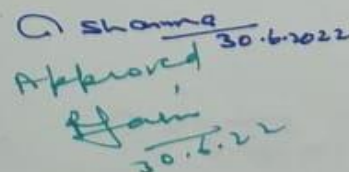 Sharma
30.6.2022
Approved
30.6.22